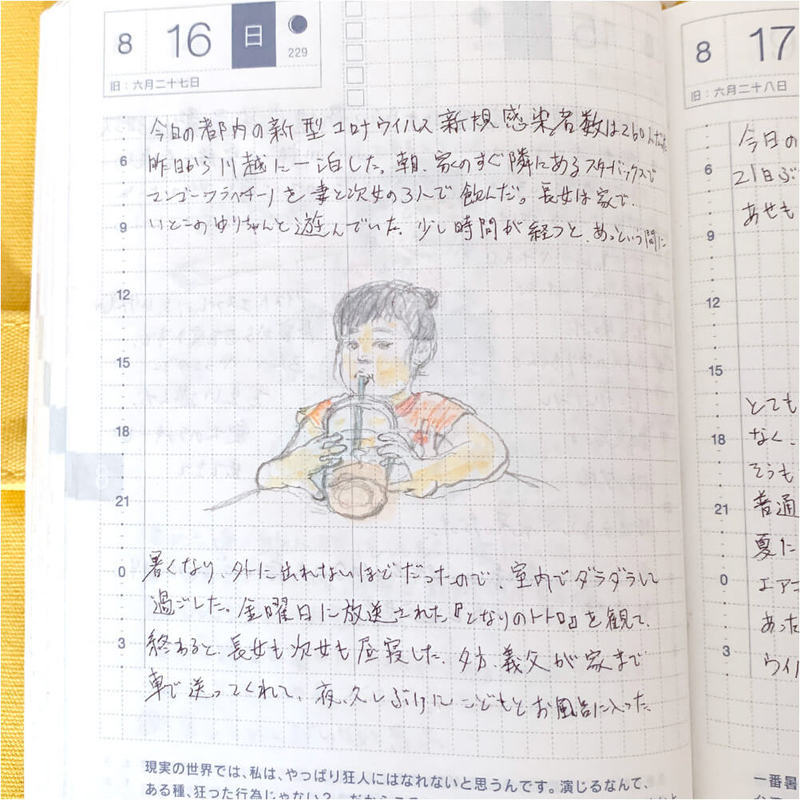 8 16 日
229
旧：六月二十七日
今日の都内の新型コロナウイルス新規感染者数は260人だった
昨日から川越に一泊した。朝、家のすぐ隣にあるスターバックスで
マンゴーフラペチーノを妻と次女の3人で飲んだ。長女は家で、
いとこのゆりちゃんと遊んでいた。少し時間が経つと、あっという間に
6
9
12
15
18
21
0
3
暑くなり、外に出れないほどだったので、室内でダラダラして
過ごした。金曜日に放送された『となりのトトロ』を観て、
終わると、長女も次女も昼寝した。夕方、義父が家まで
車で送ってくれて、夜、久しぶりにこどもとお風呂に入った。
現実の世界では、私は、やっぱり狂人にはなれないと思うんです。演じるなんて、
ある種、狂った行為じゃない？
8 17
旧：六月二十八日
今日の
21日ぶ
あせも
6
9
12
15
18
21
0
3
とても
なく、
そうも
普通
夏た
エアコ
あった
ウイル
一番暑